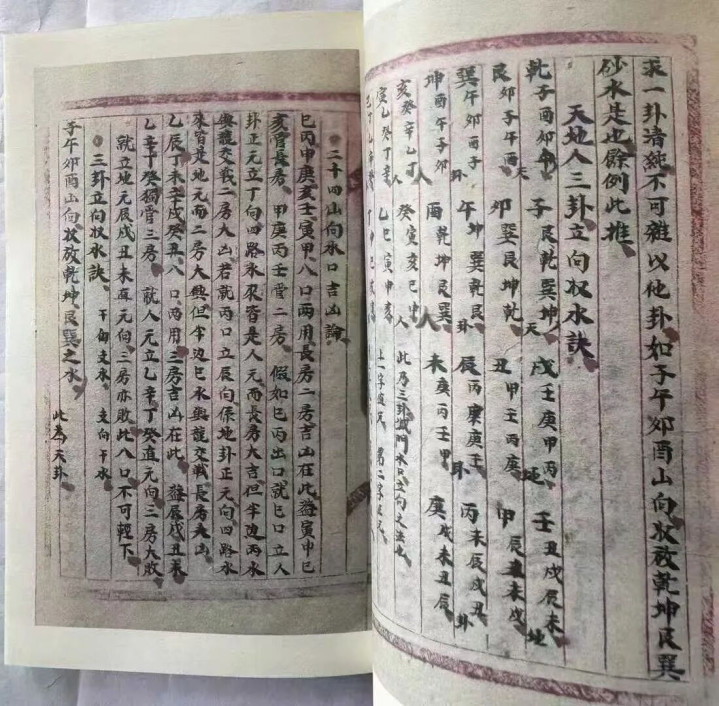 求一卦清純不可雜以他卦如子午卯酉山向收放乾坤艮巽
砂水是也餘例此推
天地人三卦立向收水訣
乾子酉卯午 天 子艮乾巽坤 天 戌壬庚甲丙 地 壬丑戌辰未 地
艮卯子午酉 卯巽艮坤乾 丑甲壬丙庚 甲辰丑未戌
巽午卯酉子 卦 午坤巽乾艮 卦 辰丙庚壬 卦 丙未辰戌丑 卦
坤酉午子卯 人 酉乾坤艮巽 人 未庚丙壬甲 庚戌未丑辰
亥癸辛乙丁 人 癸寅亥巳申 人 此乃三卦城門水口立向之法也
寅乙癸丁辛 乙巳寅申亥 上一字 第二字
二十四山向水口吉凶論
巳丙申庚亥壬寅甲八口兩用長房二房吉凶在此蓋寅申巳
亥管長房甲庚丙壬管二房假如巳丙出口就巳口立人
卦正元立丁向四路水來皆是人元而長房大吉但半邊丙水
與龍交戰二房大凶若就丙口立辰向係地卦正元向四路水
來皆是地元而二房大興但半邊巳水與龍交戰長房大凶
乙辰丁未辛戌癸丑八口兩用三房吉凶在此蓋辰戌丑未
乙辛丁癸獨管三房就人元立乙辛丁癸直元向三房大敗
就立地元辰戌丑未直元向三房亦敗此八口不可輕下
三卦立向收水訣 干向支水 支向干水
子午卯酉山向收放乾坤艮巽之水 此為天卦